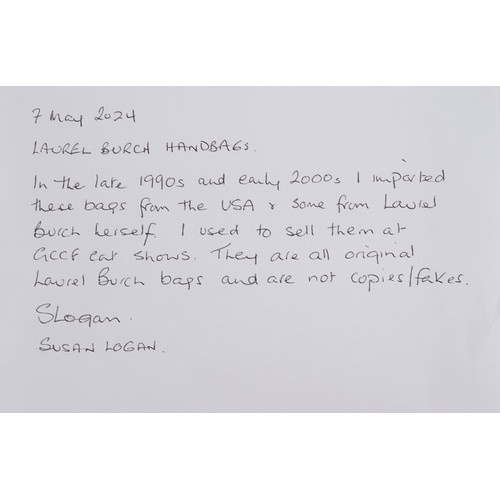 7 May 2024
LAUREL BURCH HANDBAGS.
In the late 1990s and early 2000s I imported
these bags from the USA & some from Laurel
Burch herself. I used to sell them at
GCCF cat shows. They are all original
Laurel Burch bags and are not copies/fakes.
SLogan.
SUSAN LOGAN.